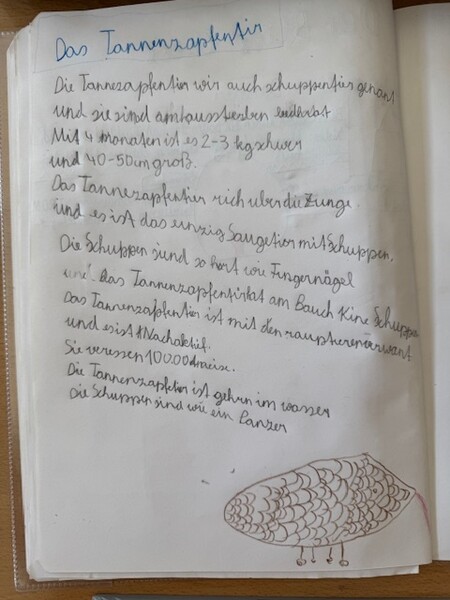 Das Tannenzapfentir
Die Tannezapfentier wir auch schuppentier genant
und sie sind amhaussterben bedrost
Mit 4 monaten ist es 2-3 kg schwer
und 40-50cm groß.
Das Tannenzapfentier rich uber die Zunge.
und es ist das einzig Saugetier mit Schuppen.
Die Schuppen sind so hart wie Fingernägel
und das Tannenzapfentir hat am Bauch Kine Schuppen
Das Tannenzapfentier ist mit den raupteren verwant
und es ist Nachaktief.
Sie veressen 10000 Ameise.
Die Tannenzapfetier ist gehrn im wasser
die Schuppen sind wie ein Panzer